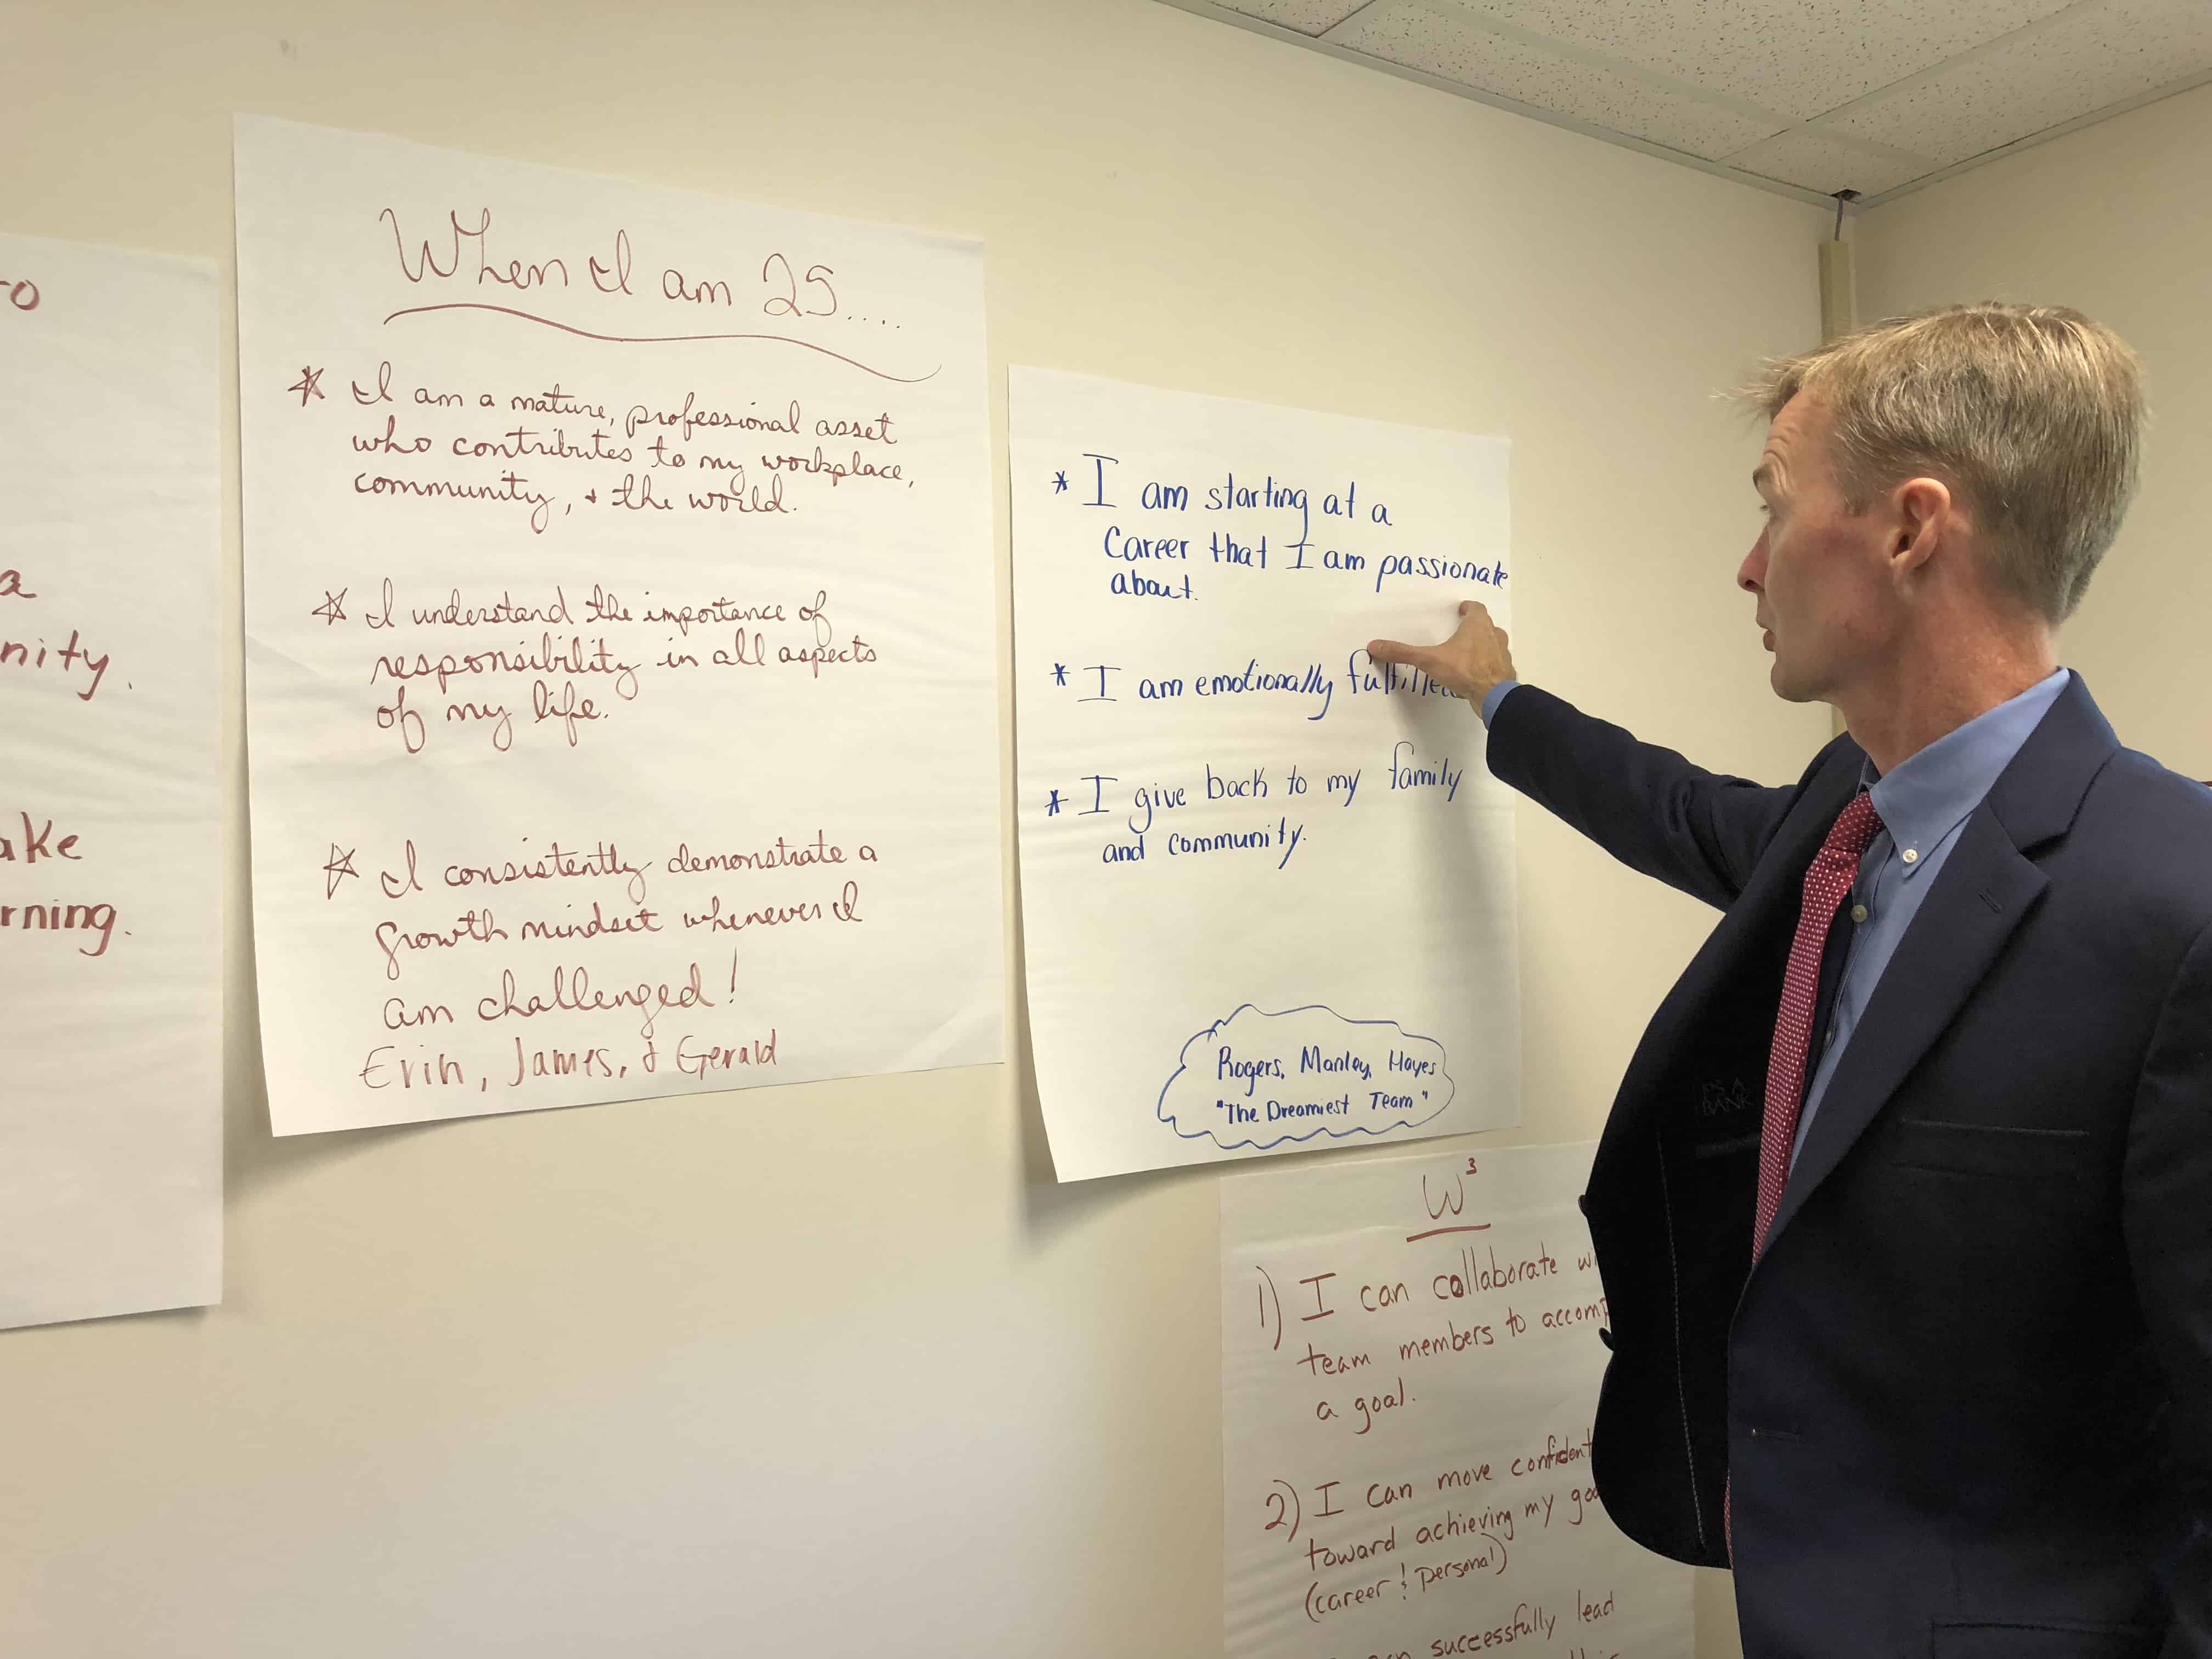 a
nity.
ake
rning.
When I am 25....
* I am a mature, professional asset
who contributes to my workplace,
community, + the world.
* I understand the importance of
responsibility in all aspects
of my life.
* I consistently demonstrate a
growth mindset whenever I
am challenged!
Erin, James, & Gerald
* I am starting at a
Career that I am passionate
about.
* I am emotionally fulfilled
* I give back to my family
and community.
Rogers, Manley, Hayes
"The Dreamiest Team"
W³
1) I can collaborate
team members to accomp
a goal.
2) I can move confident
toward achieving my goa
(career & personal)
successfully lead
JOS A
BANK